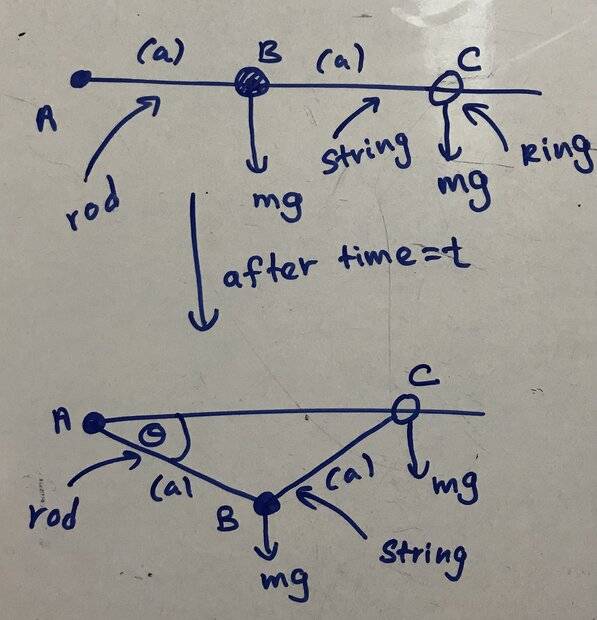 (a) B (a) C
A
rod mg string mg Ring
after time=t
C
A θ
rod (a) B (a) mg
mg string